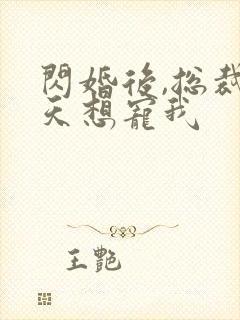 閃婚後,総裁
天想寵我
王艷